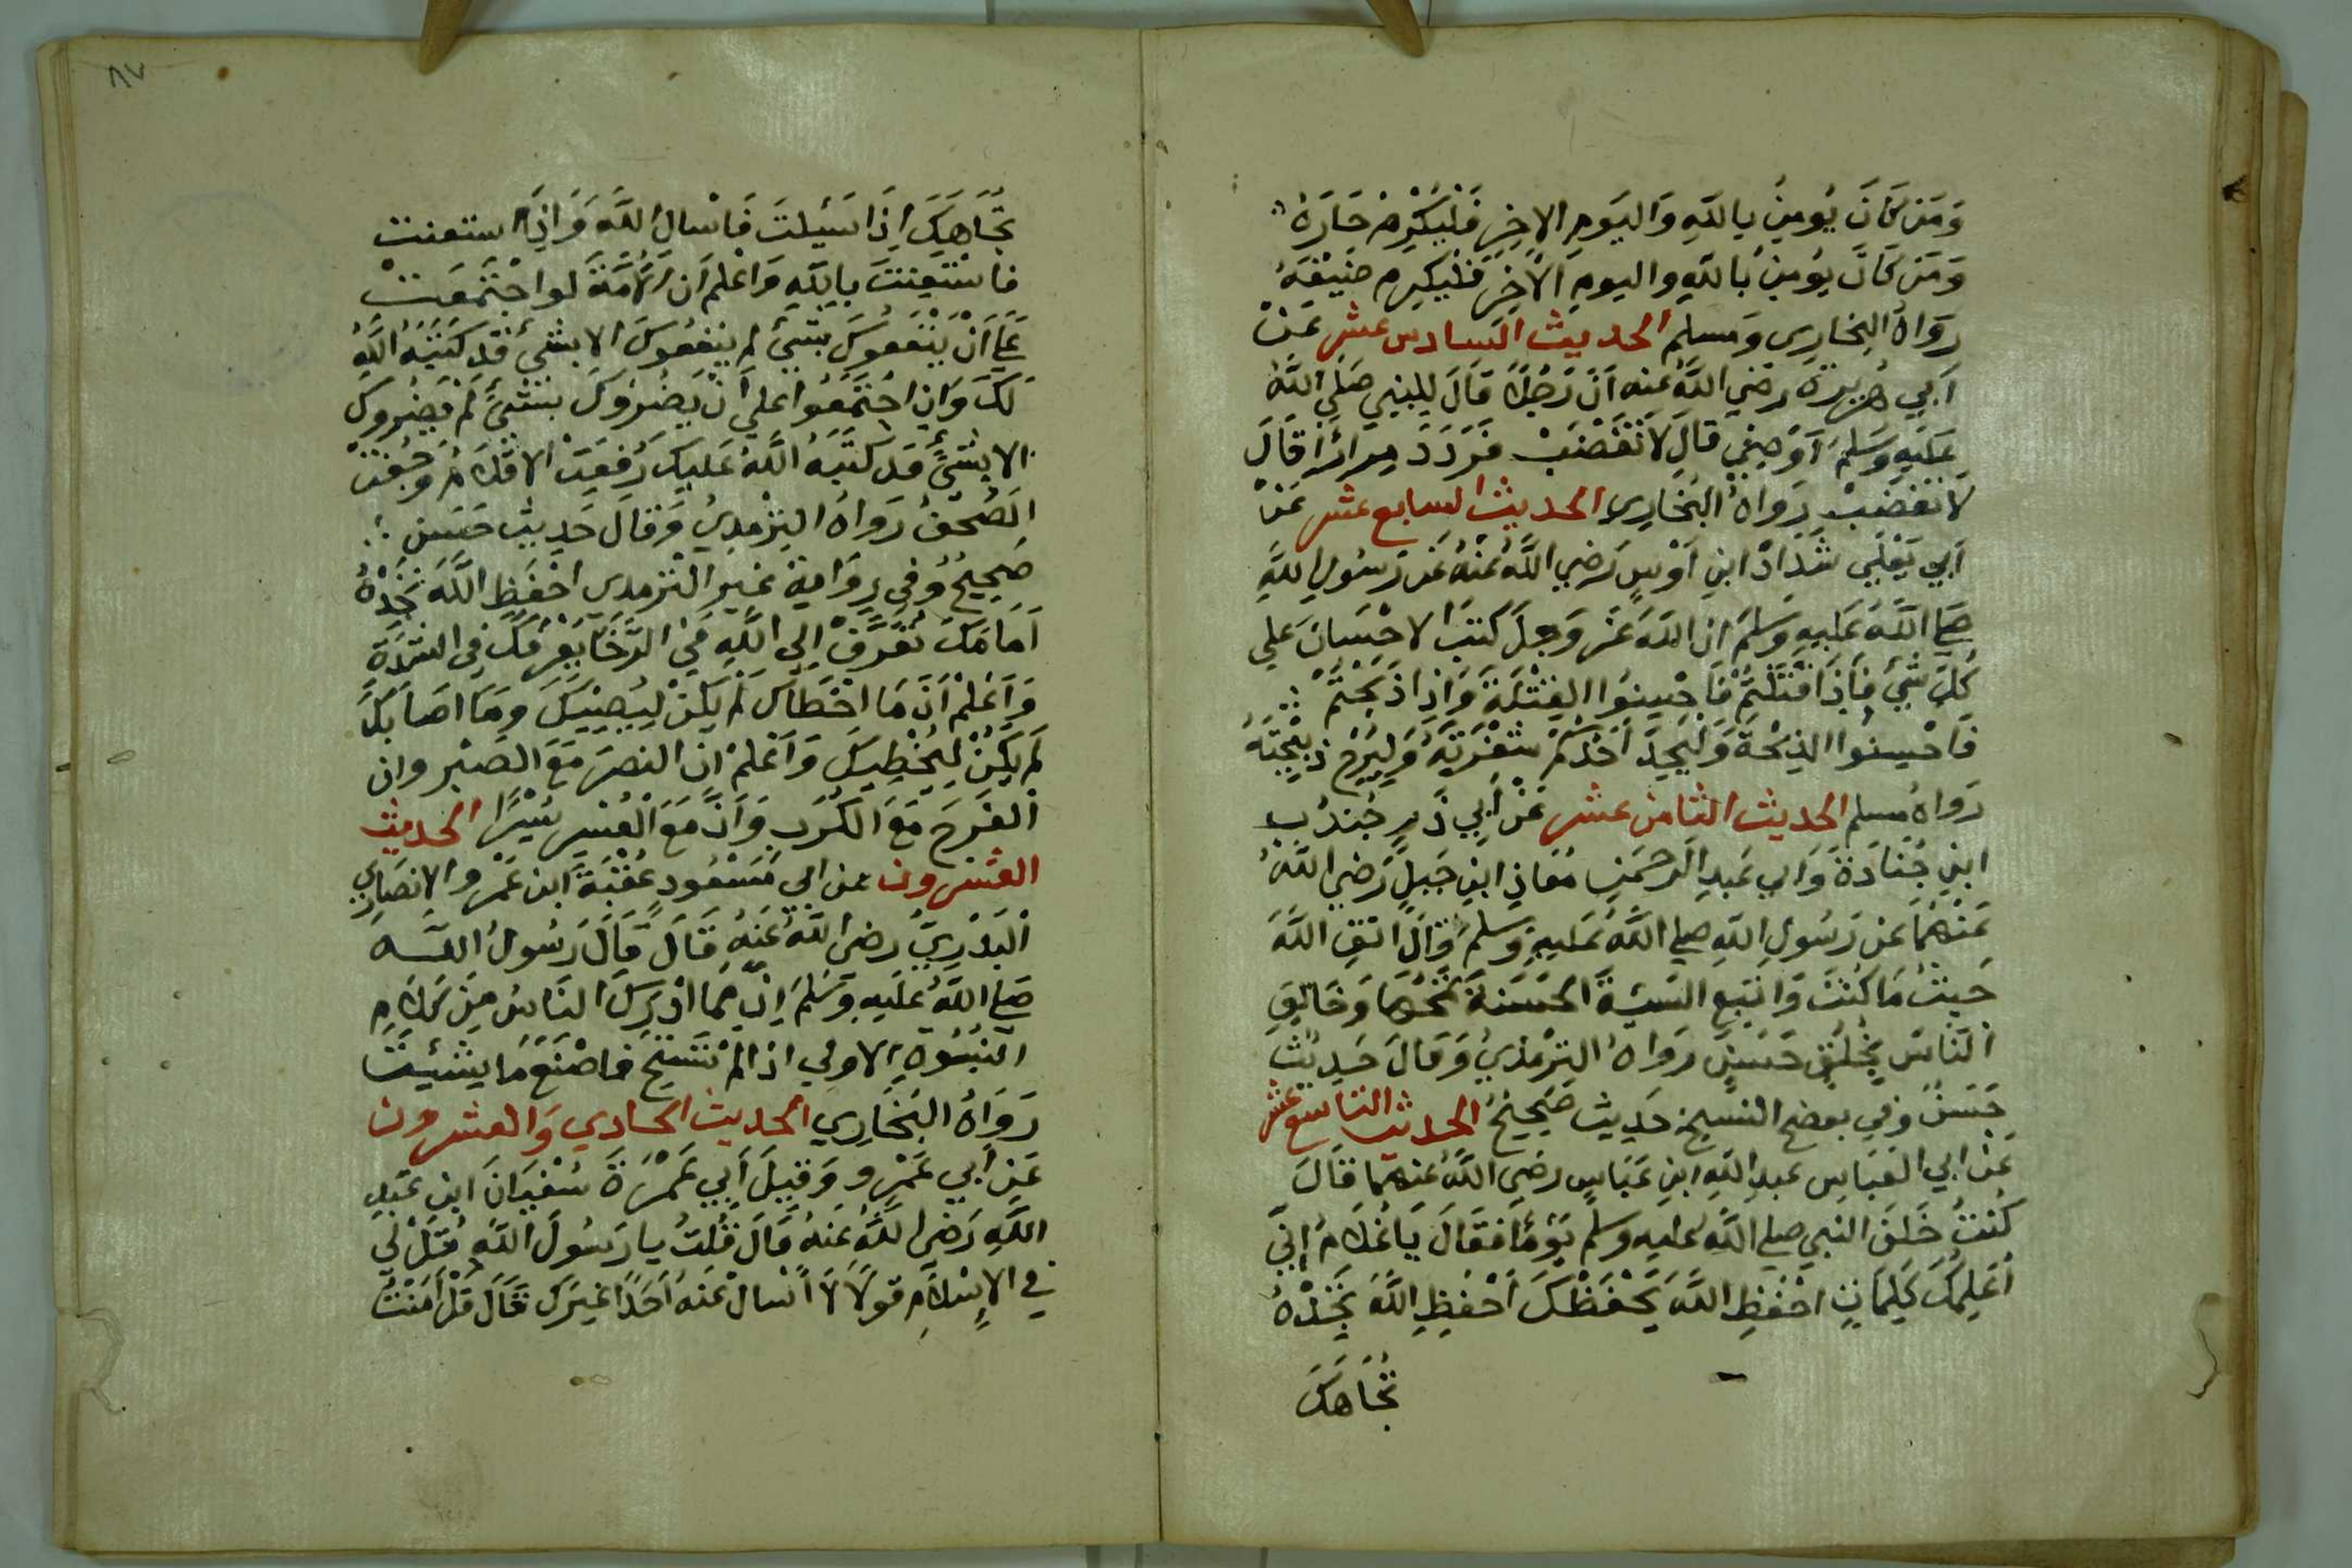 وَمَن كَانَ يُومِنُ بِاللَّهِ وَاليَومِ الاخِرِ فَليُكْرِمْ جَارَهُ
وَمَن كَانَ يُومِنُ بُاللَّهِ واليومِ الْاخِرِ فَليُكرِم ضَيْفَهُ
رَوَاهُ البخارِى وَمسلم الحديث السادس عشر عَنْ
اَبِي هُرَيرَةَ رضي اللَّهُ عنه اَنَّ رَجُلًا قَالَ لِلنبِي صَلَّي اللَّهُ
عَلَيهِ وَسَلَّمَ اَوْصِنِي قالَ لَا تَغْضَبْ فَرَدَدَ مِرارًا قَالَ
لَا تَغضَبْ رَوَاهُ البُخَارِى الحديث السابع عشر عَنْ
اَبِي يَعْلَي شَدادْ ابنِ اَوْسٍ رَضِي اللَّهُ عَنْهُ عَن رَسُولِ للَّهِ
صلي اللَّهُ عَلَيهِ وَسَلمَ ان اللَّهَ عَزَ وَجلَ كَتَبَ الاحْسَانَ عَلي
كُلِّ شَيْ فَاِذَا قتَلْتُمْ فَاحْسِنُوا القِتْلَةَ وَاِذا ذَبَحْتُمْ
فَاحْسِنُوا الذِبْحَةَ وَليُحِدَّ اَحَدُكُمْ شَفْرَتَهُ وَليُرِحْ ذبِيْحَتَهُ
رَوَاهُ مسلم الحديث الثامن عشر عَنْ اَبِي ذَرٍ جُندُبِ
ابنِ جُنَادَةَ وَابِي عَبدِ الرحمَنِ مُعَاذِ ابنِ جَبَلٍ رَضِي اللَّهُ
عَنهُمَا عَن رَسُولِ اللَّهِ صلي اللَّهُ عَلَيهِ وَسلمَ قالَ اتقِ اللَّهَ
حَيثُ مَا كُنتَ وَاتبِعِ السَيئَةَ الحَسَنةَ تَمْحُهَا وَخَالِقِ
النَاسَ بِخُلُقٍ حَسَنٍ رَوَاهُ التِرْمذيُ وَقَالَ حَدِيْث
حَسَنٌ وَفِي بعض النسخ حَدِيث صَحِيْحُ الحديث التاسع عشر
عَنْ ابي العَبَاسِ عبدِ اللَّهِ ابنِ عَبَاسٍ رضَي اللَّهُ عَنهما قَالَ
كُنتُ خَلفَ النبيِ صلي اللَّه عليه وسلم يَوْمًا فقَالَ يَا غُلَامُ اِنِّي
اُعَلِمُكَ كَلِمَاتٍ احْفَظِ اللَّهَ يَحْفَظْكَ اَحْفَظِ اللَّهَ تَجِدْهُ
تُجَاهَكَ
٨٧
تُجَاهَكَ اِذَا سَئَيلتَ فَاسْالِ اللَّهَ وَاِذَا استعنت
فاسْتَعِنتَ بِاللَّهِ وَاعْلم اَن الاُمَّةَ لَو اجْتَمَعَتْ
عَلي اَنْ يَنْفَعُوكَ بِشَيْ لم يَنفِعُوكَ الا بشَيْ قَد كَتَبَهُ اللَّهُ
لَكَ وَاِن اجْتَمَعُوا علي اَنْ يَضُرُوكَ بِشَيْ لَمْ يَضُروكَ
الا بشَيْ قَد كَتَبَهُ اللَّهُ عَليكَ رُفِعَتْ الاقْلَامُ وَجُفتْ
الصُحُفُ رَوَاهُ التِرْمِدِيُ وَقالَ حَدِيث حَسَن
صَحِيحٌ وَفِي رِوَايةِ غَيرِ التِرمدى احْفَظِ اللَّهَ تَجِدْهُ
اَمَامَكَ تُعَرَّفْ اِلي اللَّهِ فِيْ الرَّخَا يَعْرِفُكَ فِى الشِدَةِ
وَاعْلَمْ اَنَّ مَا اخْطَاكَ لم يَكنْ لِيُصِيْبَكَ وَمَا اصَابَكَ
لَم يَكُنْ لِيُخْطِيكَ وَاَعْلمْ ان النصرَ مَعَ الصبْرِ وان
الفَرَجَ مَعَ الكَرْبِ وَاَنَّ مَعَ العُسرِ يُسْرًا الحديث
العشرون عن ابي مَسْعُودٍ عُقْبَةَ ابن عَمْرِو الانصَارِي
الْبَدْرِيِّ رضى اللَّهُ عَنهُ قَالَ قَالَ رَسُولُ اللَّه
صَلي اللَّهُ عَلَيهِ وَسَلَّمَ اِنَّ مما ادْرَكَ النَاسُ مِنْ كَلَامِ
النبُوةِ الاولي اذا لمْ تَسْتَحِ فاصْنَعْ مَا يشئيت
رَوَاهُ البُخَارِي الحديث الحادي وَالعشرون
عَن اَبي عَمْرٍو وَقِيلَ اَبِي عَمْرَةَ سُفْيَانَ ابنِ عَبدِ
اللَّهِ رَضى اللَّهُ عَنهُ قَالَ قُلتُ يا رَسُولَ اللَّهِ قُلْ لِي
فِي الاِسْلَامِ قولًا لَا اَسْالُ عَنهُ اَحَدًا غَيرَكَ قَالَ قُلْ اَمَنْتُ